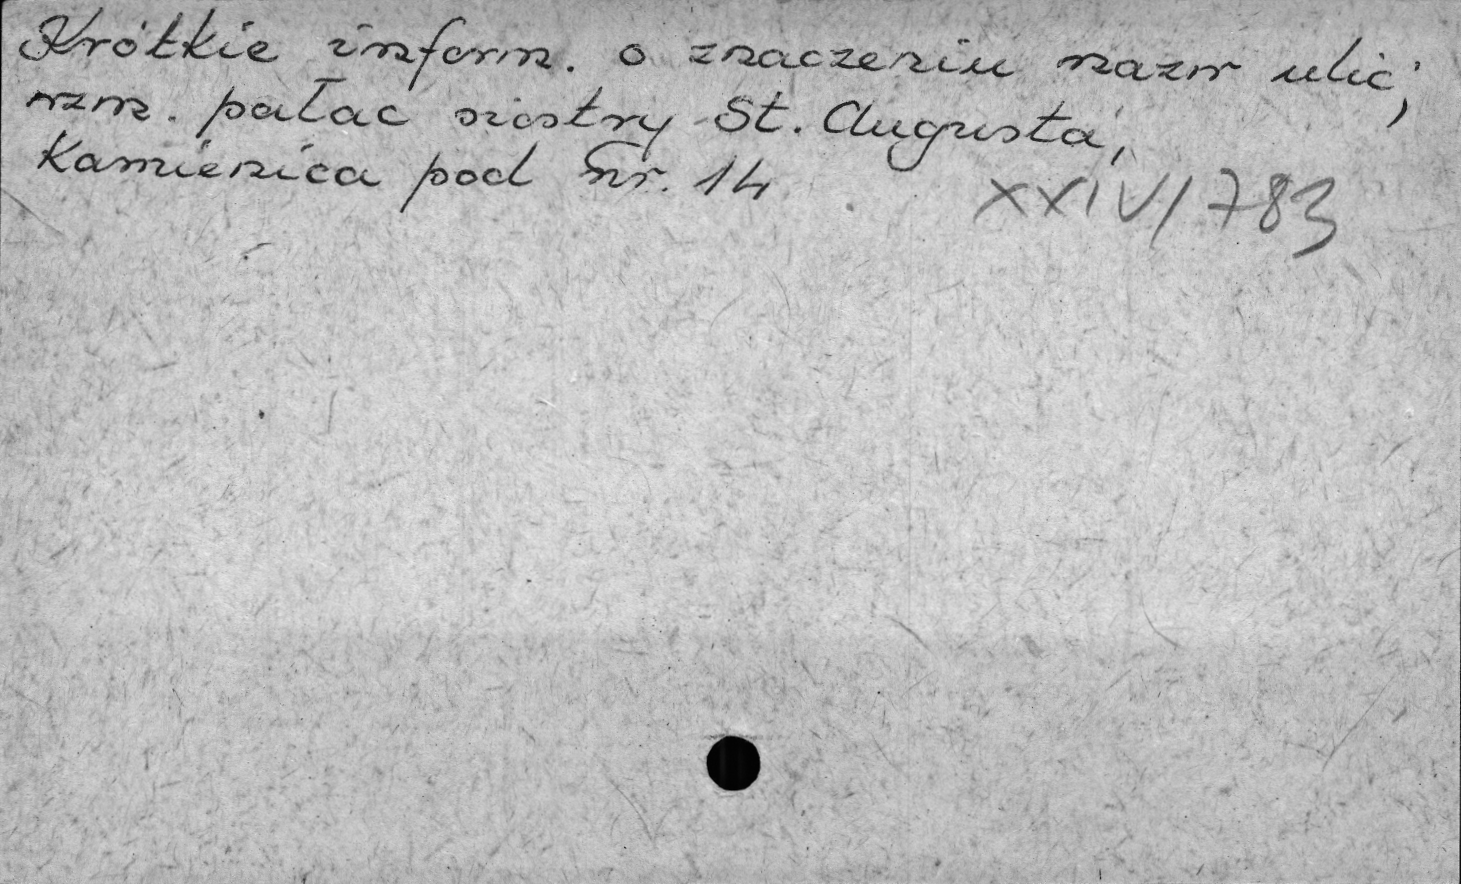 Krótkie inform. o znaczeniu nazw ulic;
wzm. pałac siostry St. Augusta,
Kamienica pod Nr. 14
XXIV/783